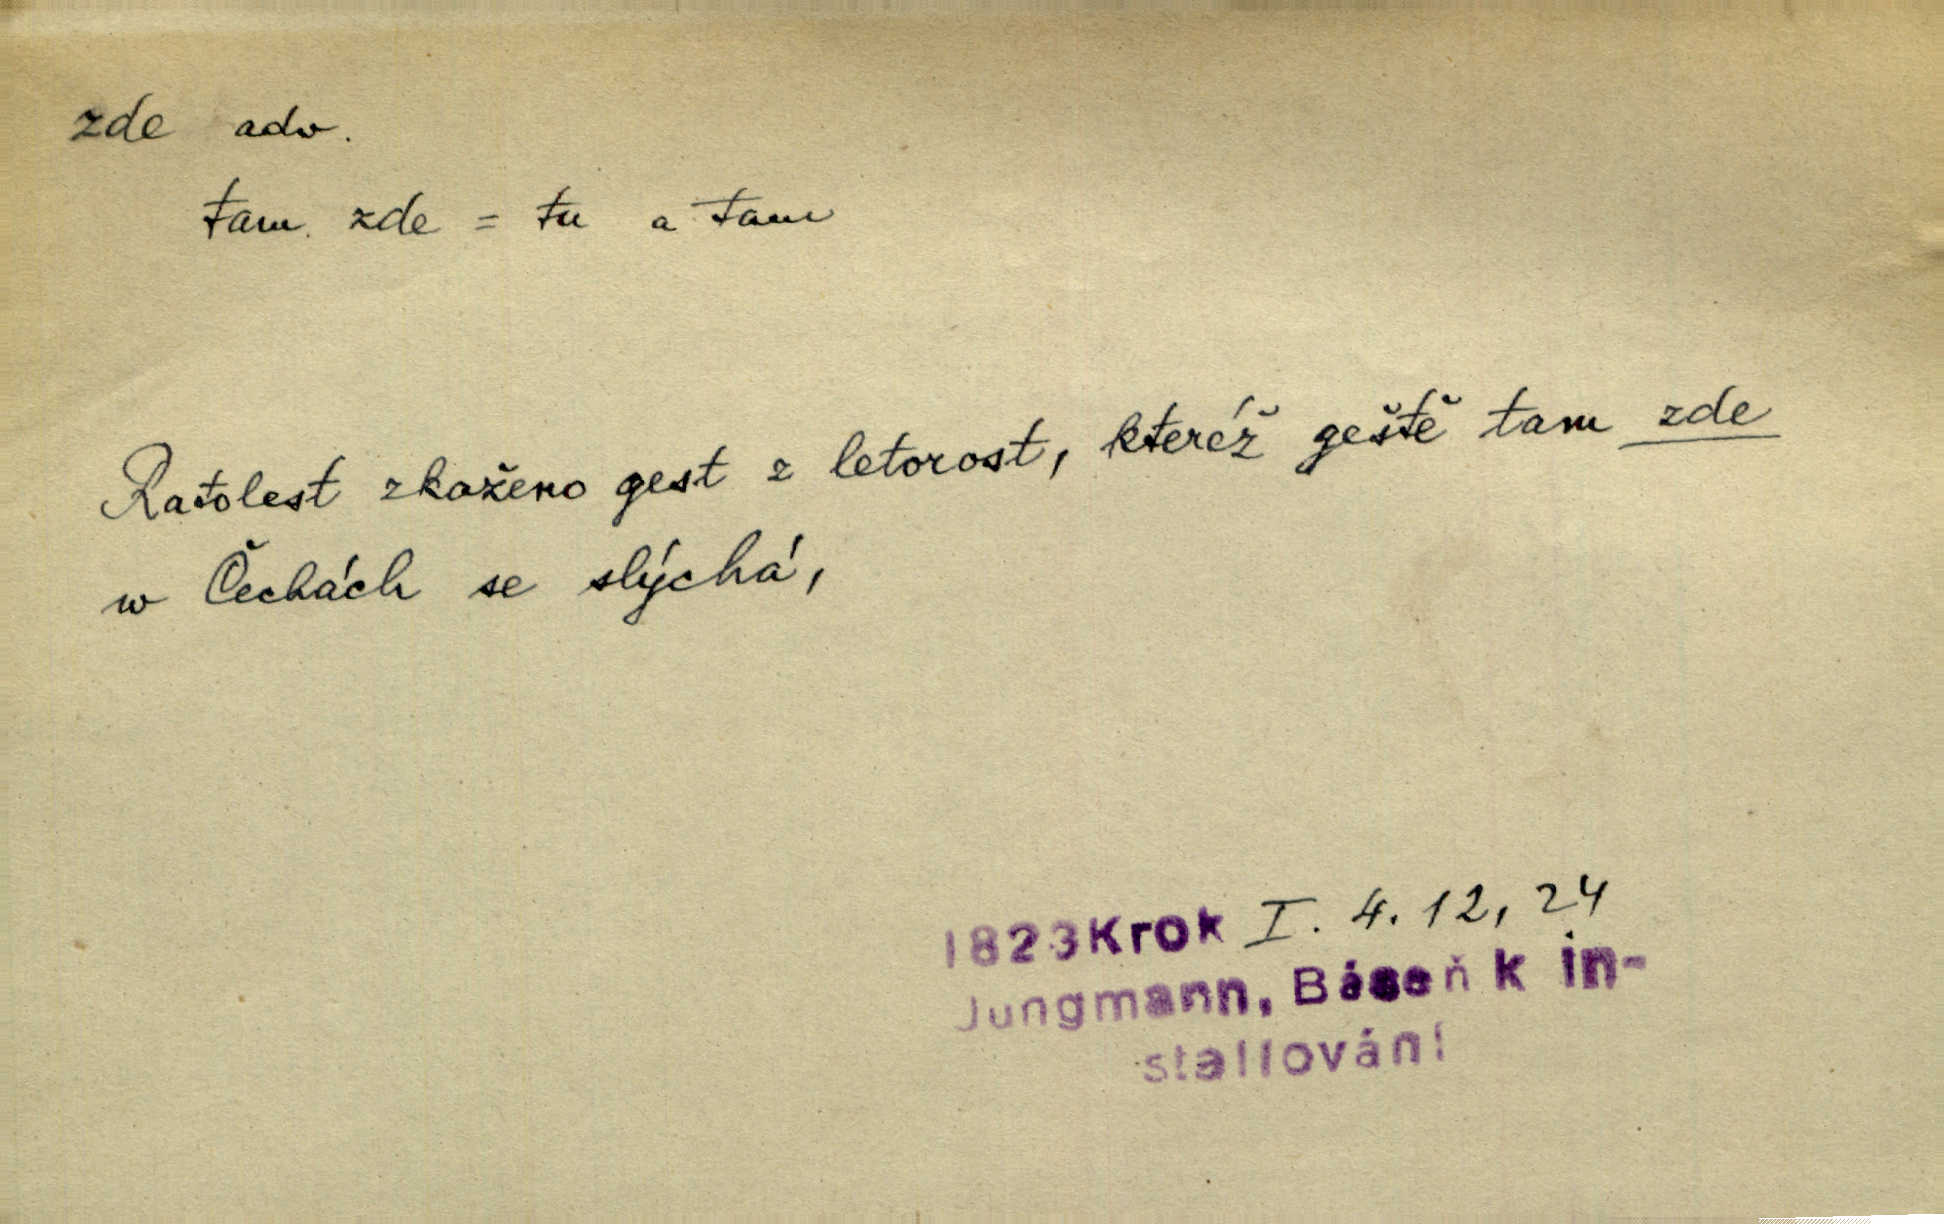 zde adv.
tam zde = tu a tam
Ratolest zkaženo gest z letorost, kteréž geště tam zde
w Čechách se slýchá,
1823 Krok I. 4. 12, 24
Jungmann, Báseň k in-
stallování